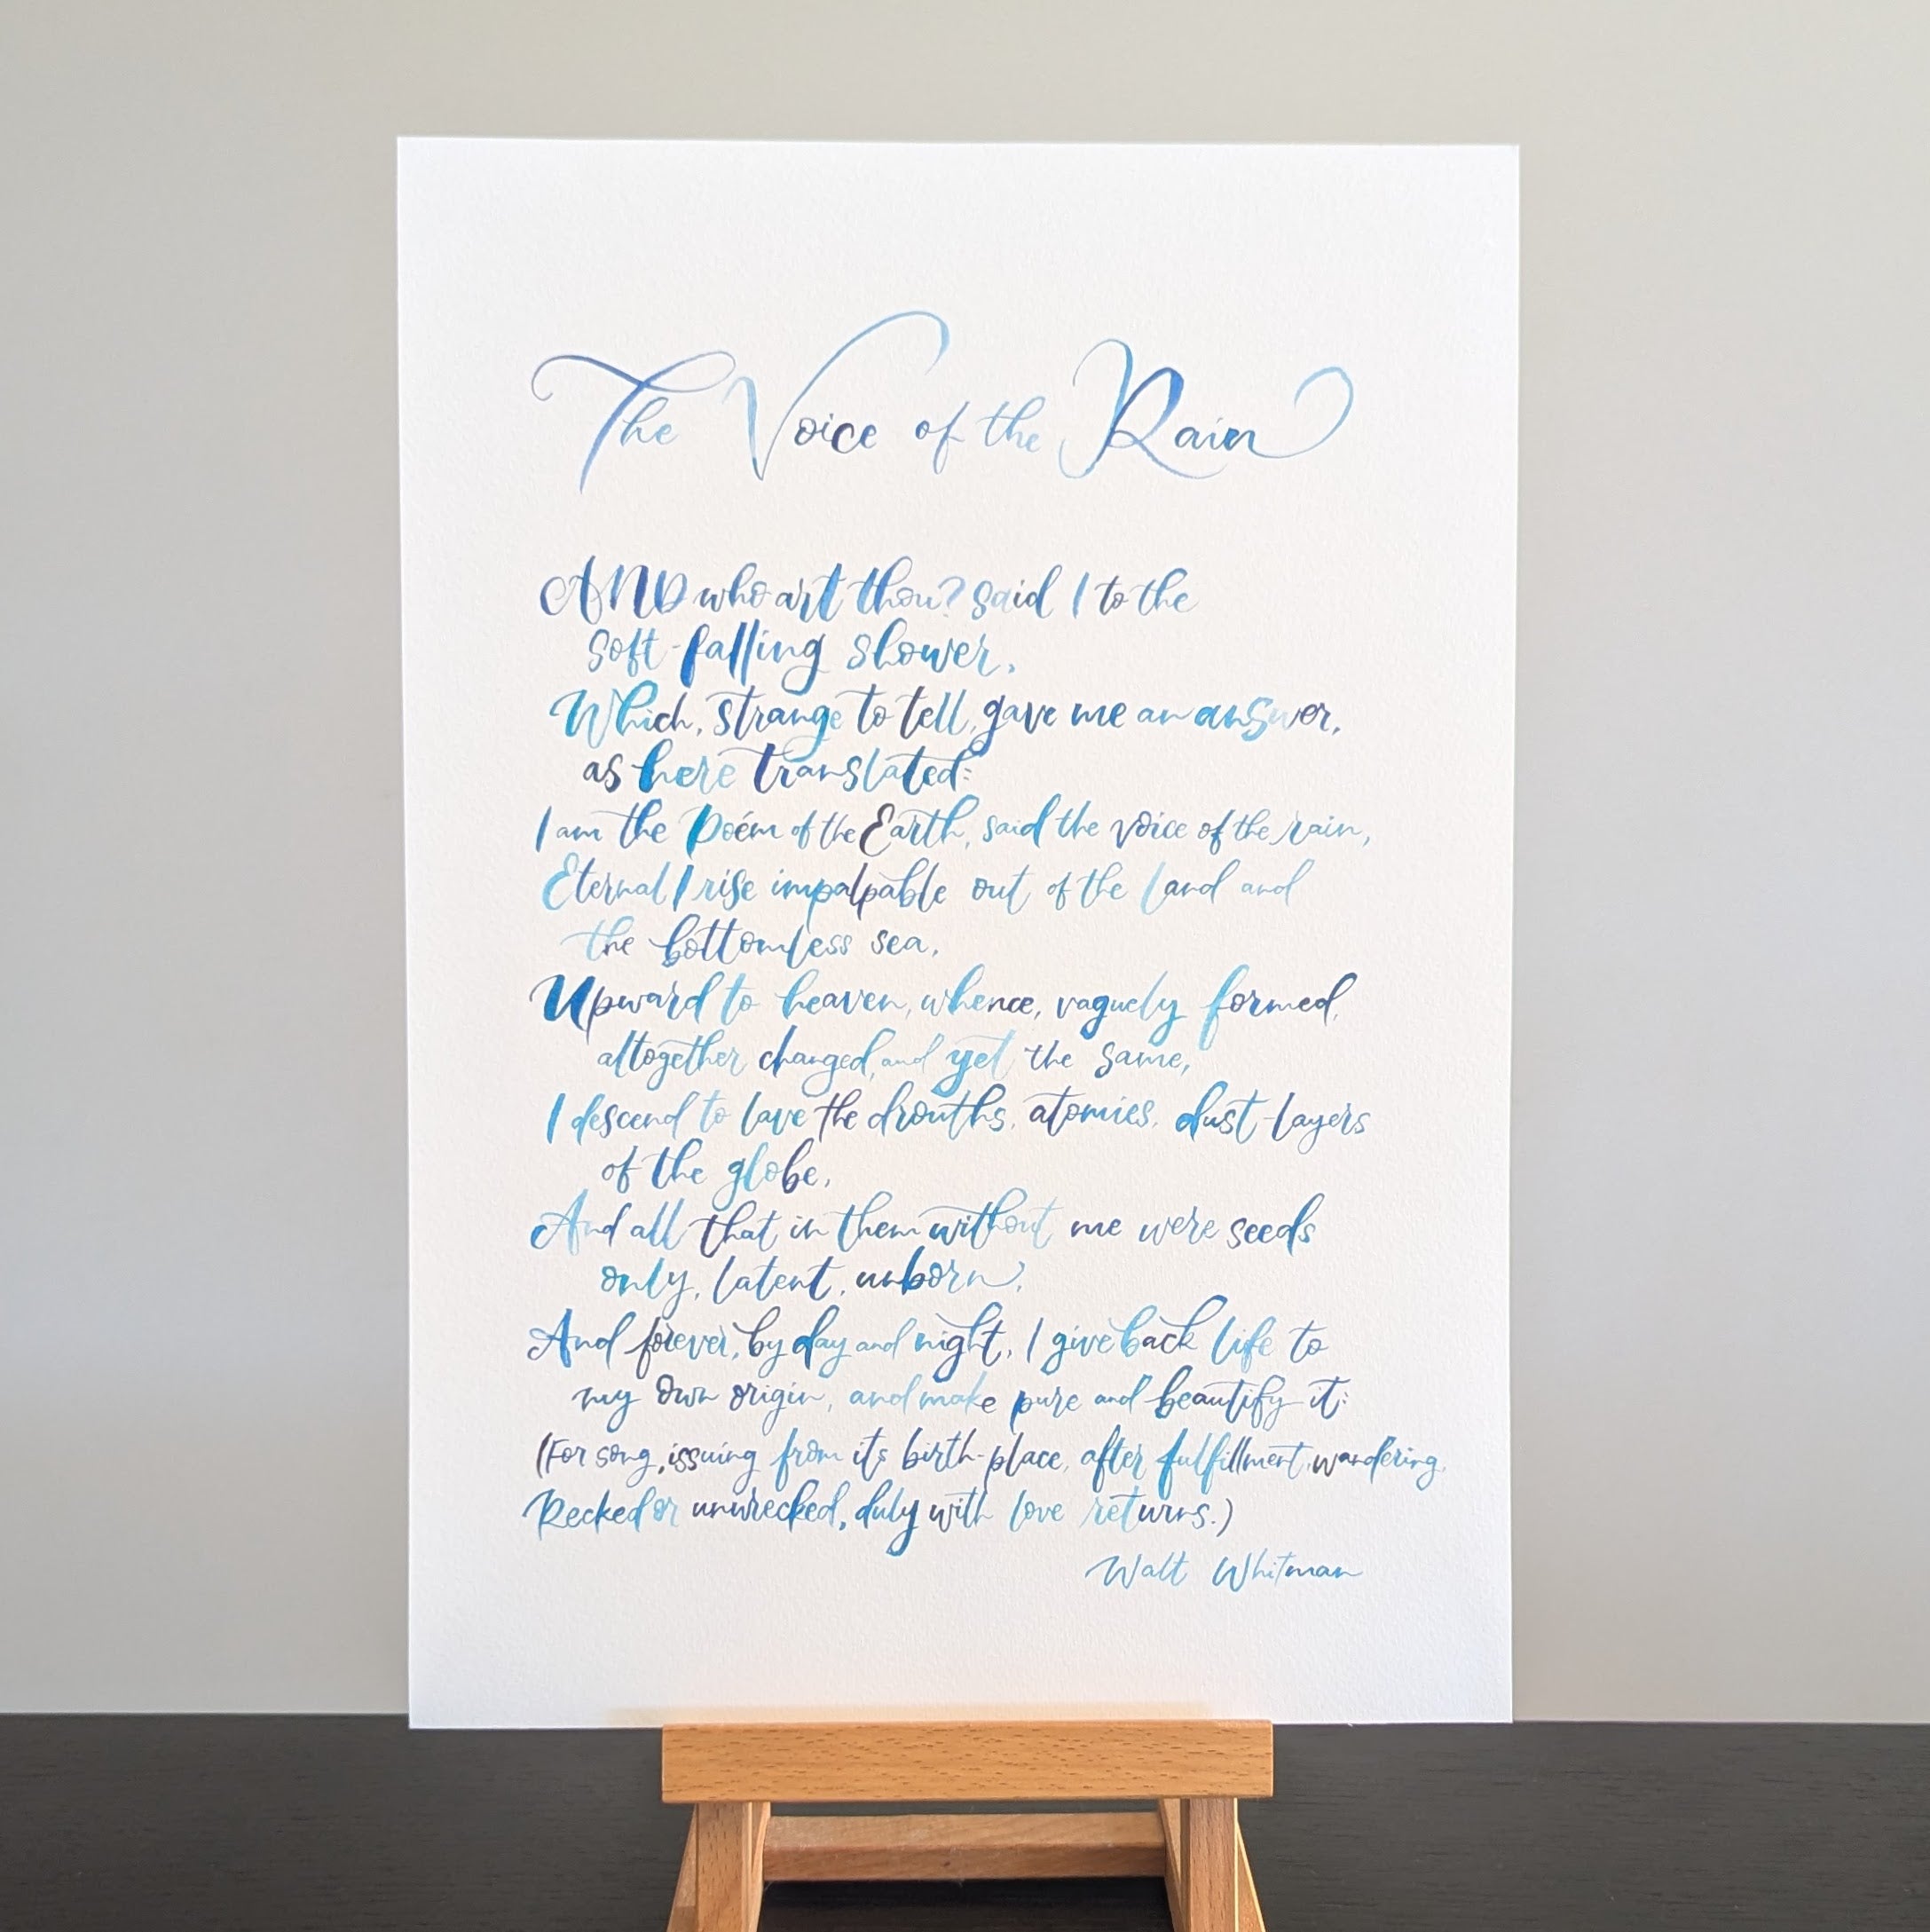 The Voice of the Rain
AND who art thou? said I to the
soft-falling shower,
Which, strange to tell, gave me an answer,
as here translated:
I am the Poém of the Earth, said the voice of the rain,
Eternal I rise impalpable out of the land and
the bottomless sea,
Upward to heaven, whence, vaguely formed,
altogether changed, and yet the same,
I descend to lave the drouths, atomies, dust-layers
of the globe,
And all that in them without me were seeds
only, latent, unborn;
And forever, by day and night, I give back life to
my own origin, and make pure and beautify it:
(For song, issuing from its birth-place, after fulfillment, wandering,
Recked or unwrecked, duly with love returns.)
Walt Whitman